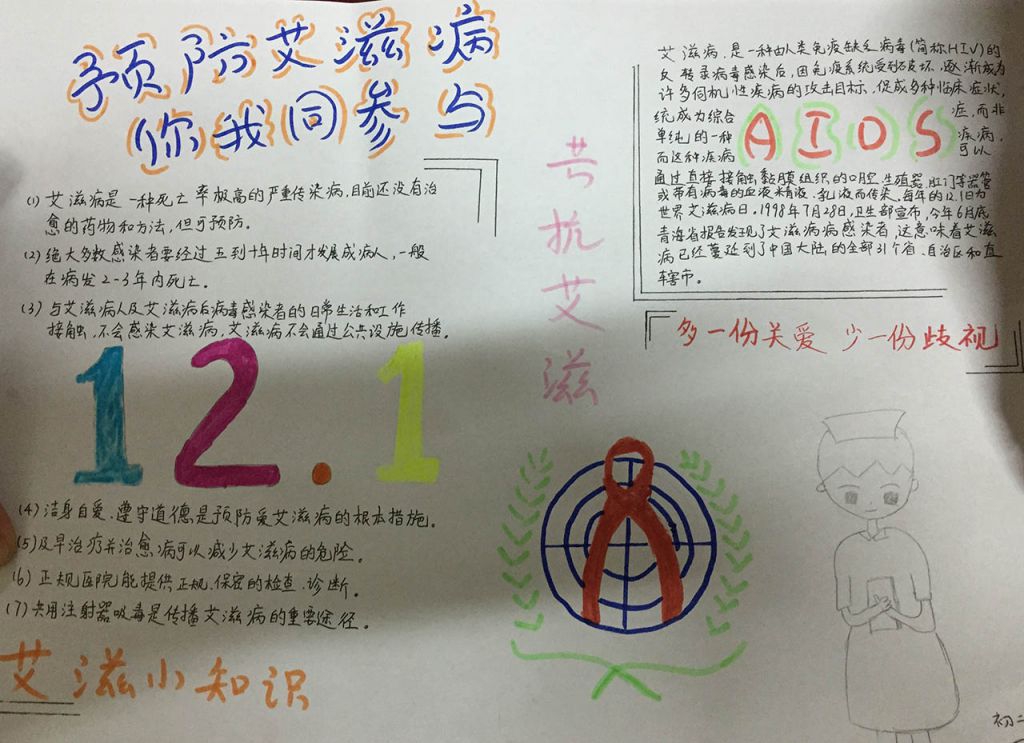 预防艾滋病
你我同参与
(1) 艾滋病是一种死亡率极高的严重传染病,目前还没有治
愈的药物和方法,但可预防。
(2) 绝大多数感染者要经过五到十年时间才发展成病人,一般
在病发2-3年内死亡。
(3) 与艾滋病人及艾滋病后病毒感染者的日常生活和工作
接触,不会感染艾滋病,艾滋病不会通过公共设施传播。
12.1
(4) 洁身自爱、遵守道德是预防爱艾滋病的根本措施。
(5) 及早治疗并治愈病可以减少艾滋病的危险。
(6) 正规医院能提供正规、保密的检查、诊断。
(7) 共用注射器吸毒是传播艾滋病的重要途径。
艾滋小知识
抗
艾
滋
艾滋病,是一种由人类免疫缺乏病毒(简称HIV)的
反转录病毒感染后,因免疫系统受到破坏,逐渐成为
许多伺机性疾病的攻击目标,促成多种临床症状,
统成为综合 症,而非
单纯的一种 疾病,
而这种疾病 可以
AIDS
通过直接接触黏膜组织的口腔、生殖器、肛门等器官
或带有病毒的血液、精液、乳液而传染,每年的12.1日为
世界艾滋病日。1998年7月28日,卫生部宣布,今年6月底
青海省报告发现了艾滋病病感染者,这意味着艾滋
病已经蔓延到了中国大陆的全部31个省、自治区和直
辖市。
多一份关爱 少一份歧视
初二